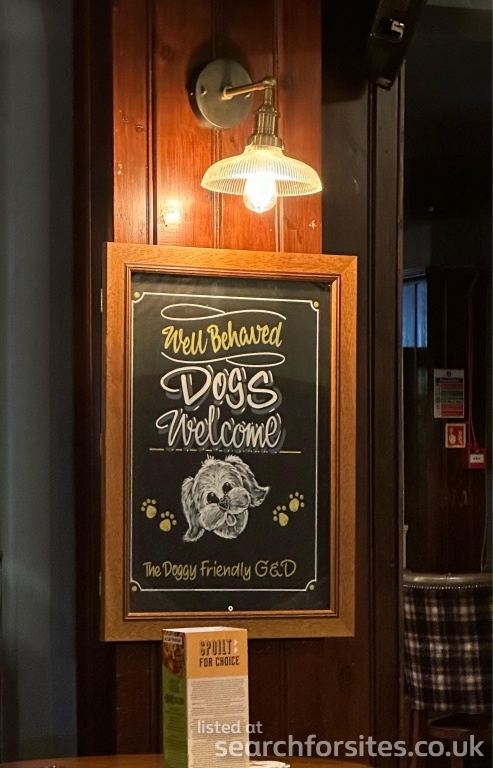 Well Behaved
Dogs
Welcome
The Doggy Friendly G&D
SPOILT
FOR CHOICE
listed at
searchforsites.co.uk